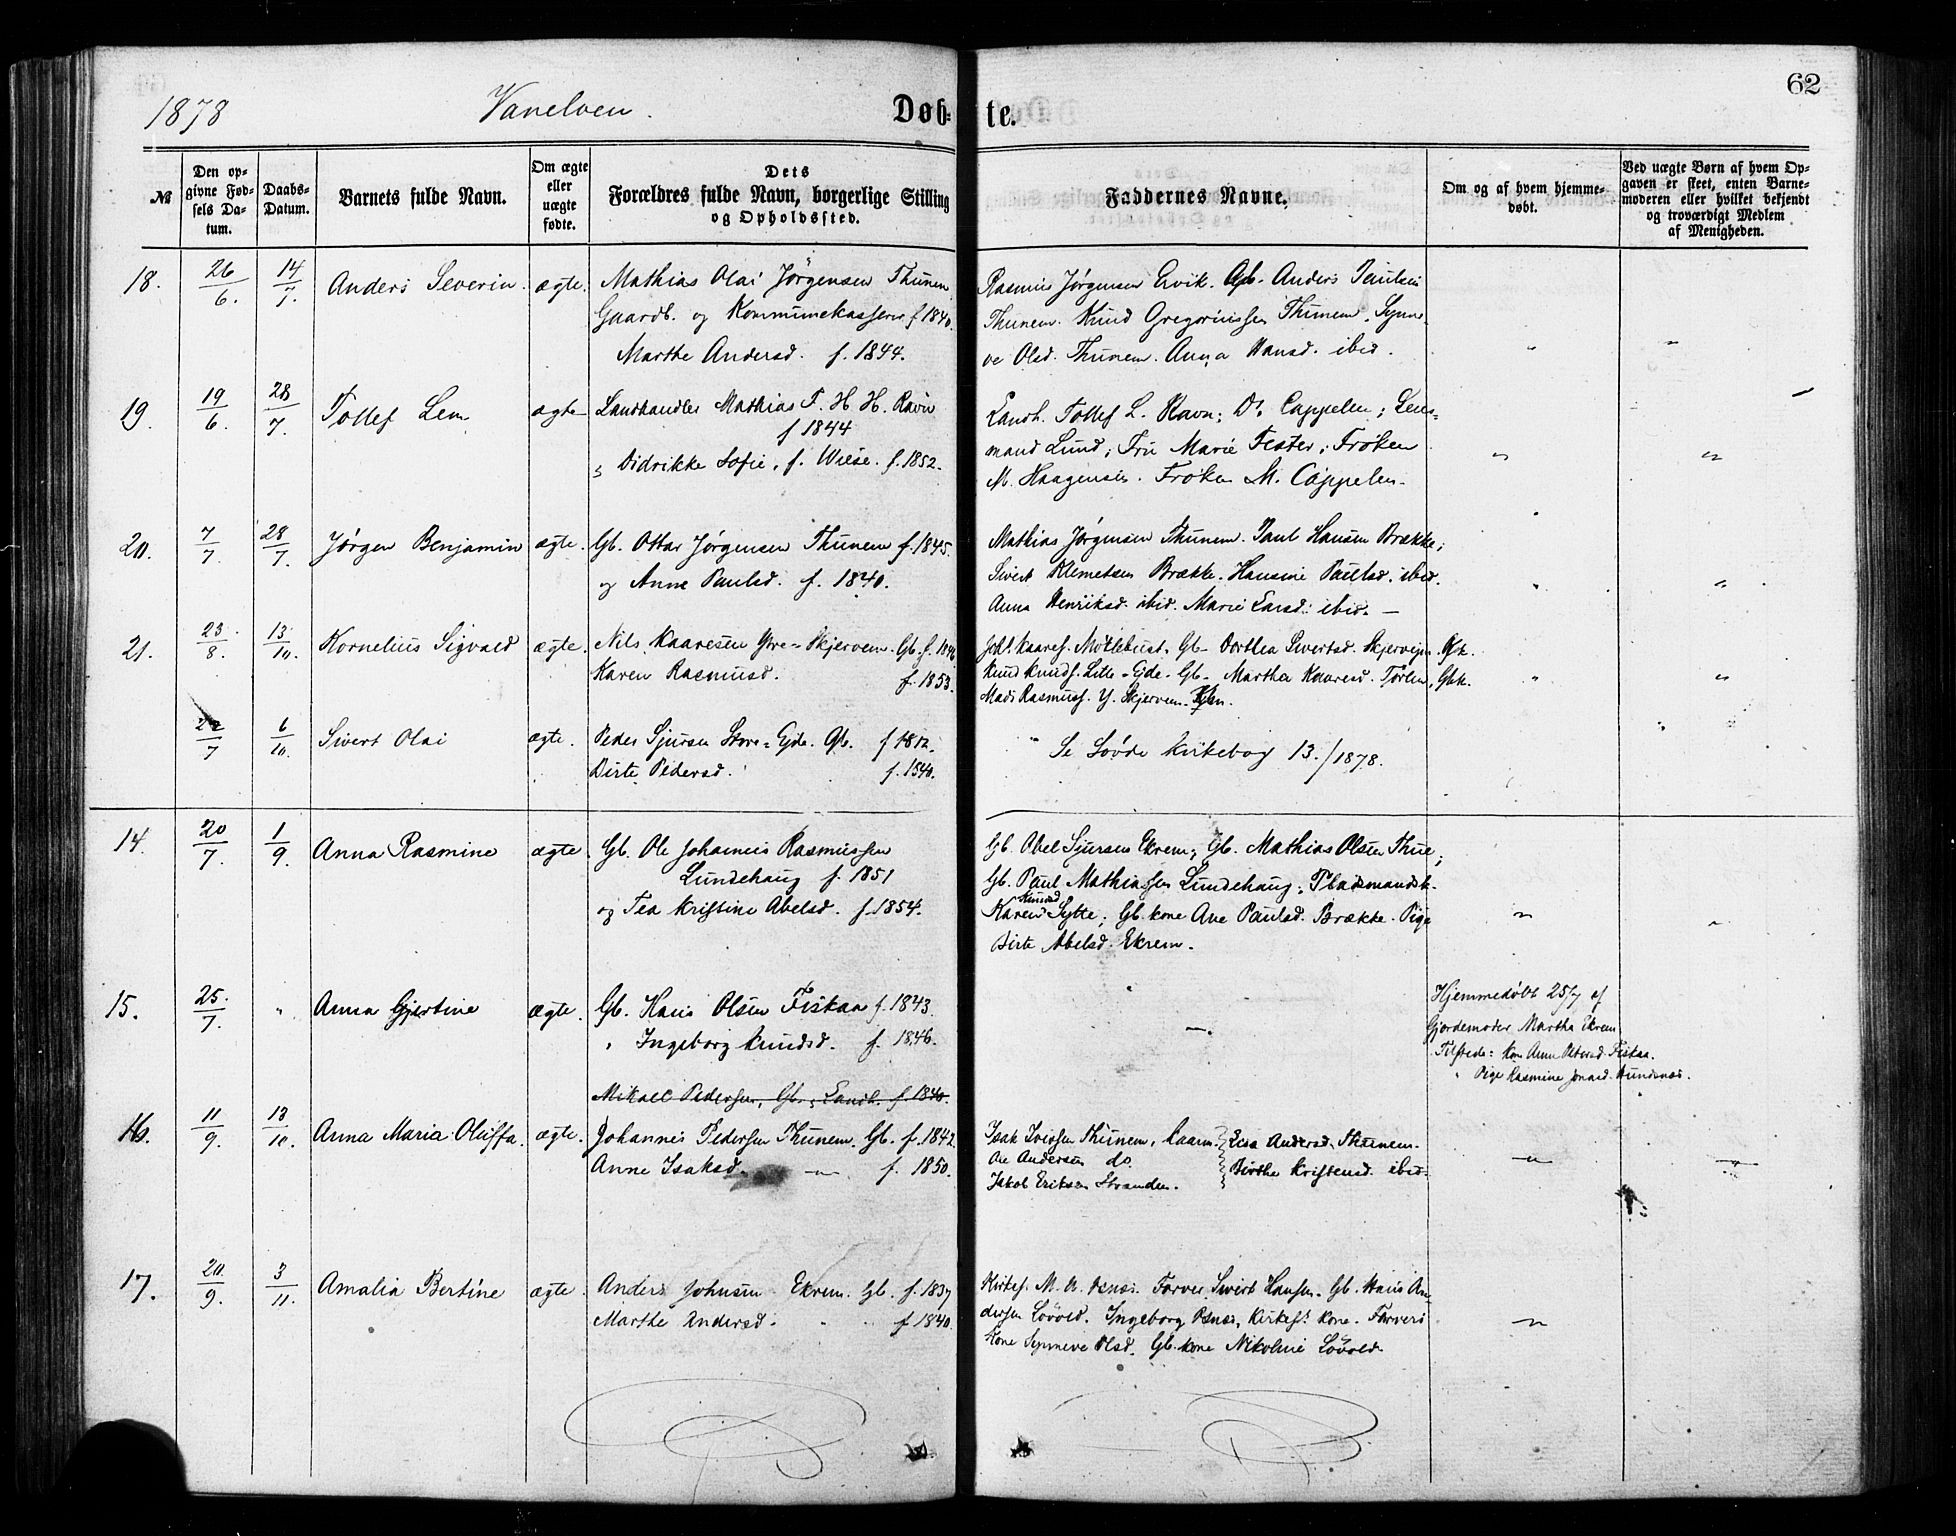 62
1878 Vanelven. Døb- te.
№
Den op-
givne Fød-
sels Da-
tum.
Daabs-
Datum.
Barnets fulde Navn.
Om ægte
eller
uægte
fødte.
Dets
Forældres fulde Navn, borgerlige Stilling
og Opholdssted.
Faddernes Navne.
Om og af hvem hjemme-
døbt.
Ved uægte Børn af hvem Op-
gaven er skeet, enten Barne-
moderen eller hvilket bekjendt
og troværdigt Medlem
af Menigheden.
18. 26/6. 14/7. Anders Severin. ægte. Mathias Olai Jørgensen Thunem
Gaardb. og Kommunekasserer f 1840.
Marthe Andersd. f. 1844.
Rasmus Jørgensen Ervik. Gb. Anders Paulsen
Thunem. Knud Gregoriussen Thunem. Synne-
ve Olsd. Thunem. Anna Hansd. ibid. " "
19. 19/6. 28/7. Tollef Lem ægte Landhandler Mathias F. H. H. Ravn
f 1844
" Didrikke Sofie, f. Wiese. f. 1852.
Landh. Tollef L. Ravn; Dr. Cappelen; Lens-
mand Lund; Fru Marie Fester; Frøken
M. Haagensen. Frøken M. Cappelen. " "
20. 7/7. 28/7. Jørgen Benjamin ægte. Gb. Ottar Jørgensen Thunem f. 1845.
og Anne Paulsd. f. 1840.
Mathias Jørgensen Thunem. Paul Hansen Brække;
Sivert Klemetsen Brække. Hansine Paulsd. ibid.
Anna Henriksd. ibid. Marie Larsd. ibid. — " "
21. 23/8. 13/10. Kornelius Sigvald ægte. Nils Kaaresen Ytre-Skjervem. Gb. f. 1846
Karen Rasmusd. f. 1853.
Kaares. Motlebust. Gb. Dorthea Sivertsd. Skjervejen. Gbk.
Knud Knuds. Lille-Ejde. Gb. Martha Kaaresd. Gbk.
Mads Rasmuss. Y. Skjervem. " "
22/7 6/10. Sivert Olai ægte. Peder Sjursen Store-Ejde. Gb. f 1812.
Birte Pedersd. f. 1840.
" Se Sovde Kirkebog 13./1878. " "
14. 20/7. 1/9. Anna Rasmine ægte Gb. Ole Johannes Rasmussen
Lundehaug f. 1851
og Tea Kristine Abelsd. f. 1854.
Gb. Abel Sjursen Ekrem; Gb. Mathias Olsen Thue;
Gb. Paul Mathiassen Lundehaug; Pladsmandsk.
Karen Knudsd Sytte; Gb. kone Ane Paulsd. Brække. Pige
Birte Abelsd. Ekrem. " "
15. 25./7. " Anna Gjertine ægte. Gb. Hans Olsen Fiskaa f. 1843.
" Ingeborg Knudsd. f. 1846.
" —"—
Hjemmedøbt 25/7 af
Gjordemoder Martha Ekrem
Tilstede: Kone Anne Fiskaa.
" Pige Rasmine Jonasd. Hundsnæs.
Mikael Pedersen, Gb., Landh. f. 1840.
16. 11/9. 13/10. Anna Maria Oluffa. ægte. Johannes Pedersen Thunem. Gb. f. 1842.
Anne Isaksd. —"— f. 1850.
Isak Iversen Thunem, Kaarm. Lisa Andersd. Thunem.
Ole Andersen do. Birthe Kristensd. ibid.
Jakob Eriksen Stranden. —"— —"—
17. 20./9. 3/11. Amalia Bertine ægte. Anders Johnsen Ekrem. Gb. f. 1837
Marthe Andersd. " " f 1840.
Kirkes. M. A. Osnes. Farver Sivert Hansen. Gb. Hans An-
dersen Løvold. Ingeborg Osnes, Kirkes. kone. Farvers
kone Synneve Olsd. Gb. kone Nikoline Løvold. —"—